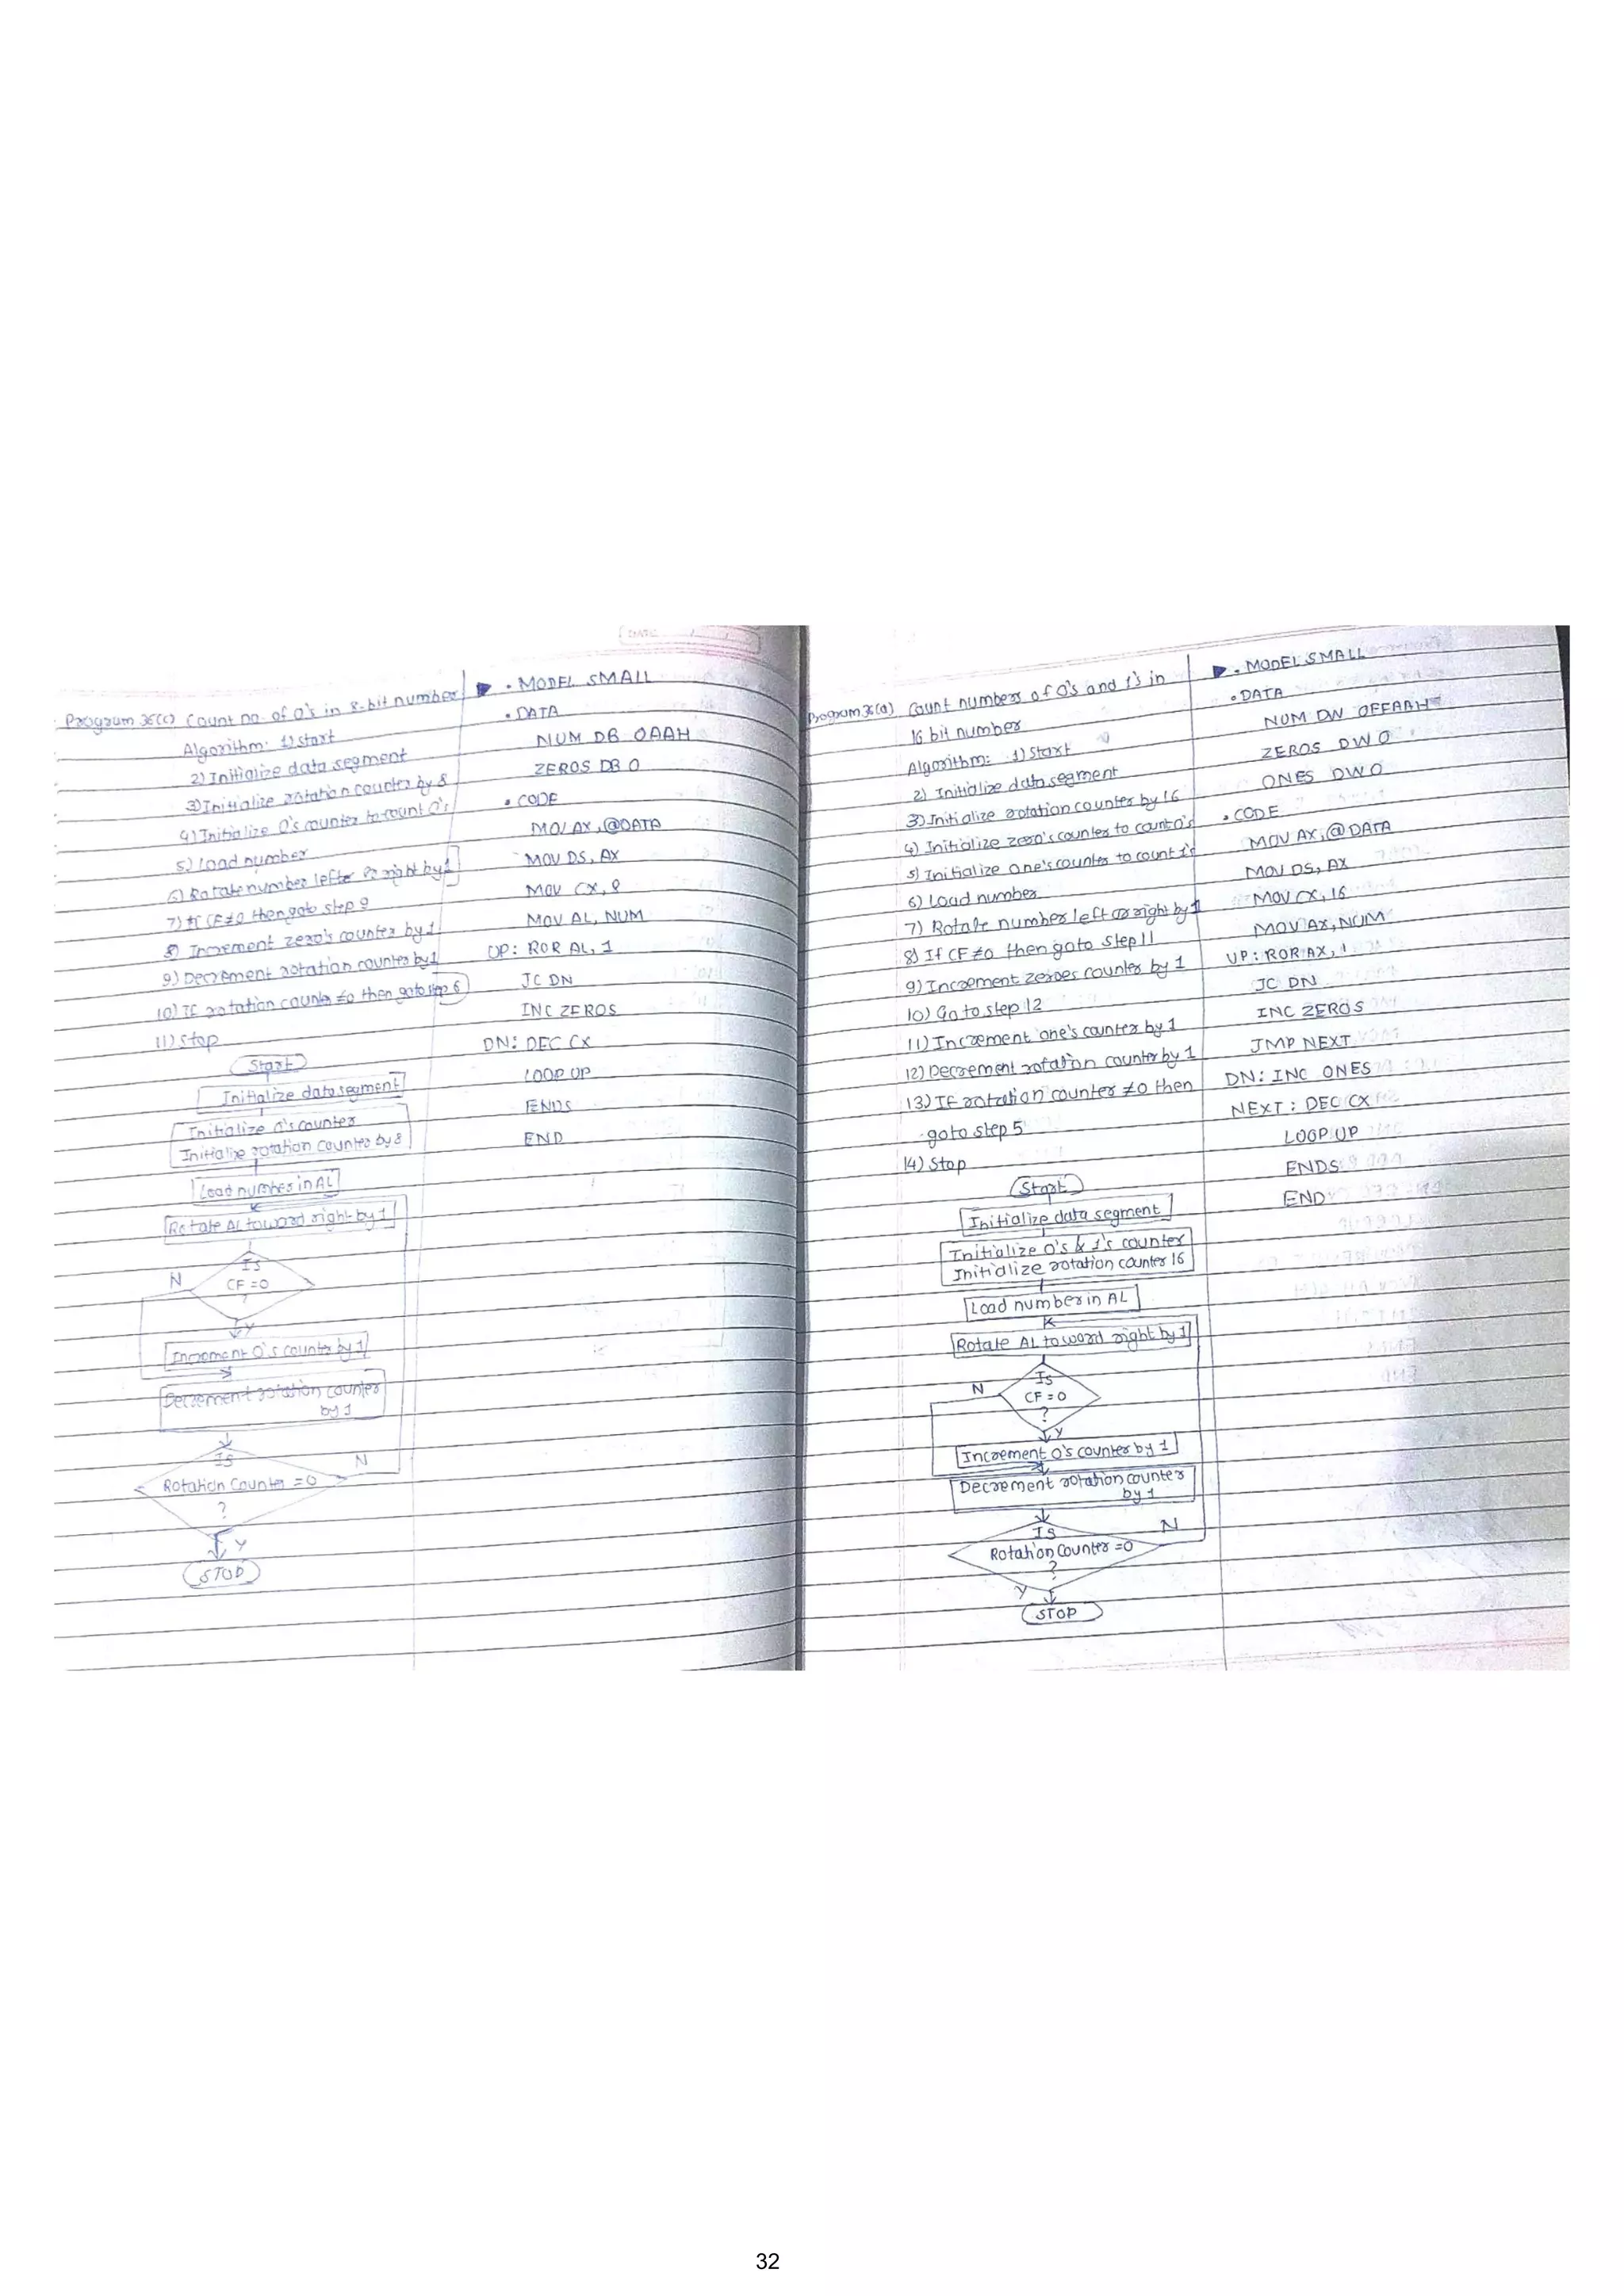 DATE / /
Program 36(c) Count no. of 0's in 8-bit number
Algorithm: 1) start
2) Initialize data segment
3) Initialize rotation counter by 8
4) Initialize 0's counter to count 0's
5) Load number
6) Rotate number left or right by 1
7) If CF≠0 then goto step 9
8) Increment zero's counter by 1
9) Decrement rotation counter by 1
10) If rotation counter ≠0 then goto step 6
11) Stop
Start
Initialize data segment
Initialize 0's counter
Initialize rotation counter by 8
Load number in AL
Rotate AL toward right by 1
Is
CF = 0
?
N
Y
Increment 0's counter by 1
Decrement rotation counter
by 1
Is
Rotation Counter = 0
?
N
Y
STOP
.MODEL SMALL
.DATA
NUM DB 0AAH
ZEROS DB 0
.CODE
MOV AX,@DATA
MOV DS, AX
MOV CX, 8
MOV AL, NUM
UP: ROR AL, 1
JC DN
INC ZEROS
DN: DEC CX
LOOP UP
ENDS
END
Program 36(a) Count numbers of 0's and 1's in
16 bit number
Algorithm: 1) Start
2) Initialize data segment
3) Initialize rotation counter by 16
4) Initialize zero's counter to count 0's
5) Initialize one's counter to count 1's
6) Load number
7) Rotate number left or right by 1
8) If CF ≠0 then goto step 11
9) Increment zeroes counter by 1
10) Go to step 12
11) Increment one's counter by 1
12) Decrement rotation counter by 1
13) If rotation counter ≠0 then
goto step 5
14) Stop
Start
Initialize data segment
Initialize 0's & 1's counter
Initialize rotation counter 16
Load number in AL
Rotate AL toward right by 1
Is
CF = 0
?
N
Y
Increment 0's counter by 1
Decrement rotation counter
by 1
Is
Rotation Counter = 0
?
N
Y
STOP
.MODEL SMALL
.DATA
NUM DW 0FFAAH
ZEROS DW 0
ONES DW 0
.CODE
MOV AX,@DATA
MOV DS, AX
MOV CX, 16
MOV AX, NUM
UP: ROR AX, 1
JC DN
INC ZEROS
JMP NEXT
DN: INC ONES
NEXT: DEC CX
LOOP UP
ENDS
END
32